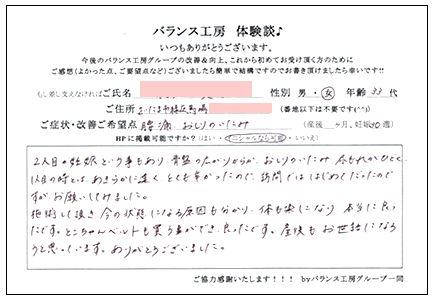 バランス工房 体験談♪
いつもありがとうございます。
今後のバランス工房グループの改善&向上、これから初めてお受け頂く方のために
ご感想(よかった点、ご要望点など)ございましたら簡単で結構ですのでお書き頂けましたら幸いです!!
もし差し支えなければご氏名 性別 男・女 年齢 33 代
ご住所 さいたま市桜区 (番地以下は不要です(^^))
ご症状・改善ご希望点 腰痛 おしりのいたみ (産後 ヶ月、妊娠 週)
HPに掲載可能ですか?(はい・イニシャルなら可能・いいえ)
2人目の妊娠という事もあり 骨盤の広がりからか、おしりのいたみ 体もれがひどく
1人目の時とは、あきらかに違く とても辛かったので、訪問でははじめてだったので
すがお願いしてみました。
施術して頂き 今の状態になる原因も分かり、体も楽になり 本当に良かっ
たです。とこちゃんベルトも買う事ができ、良かったです。産後もお世話になろ
うと思っています。ありがとうございました。
ご協力感謝いたします!!! byバランス工房グループ一同